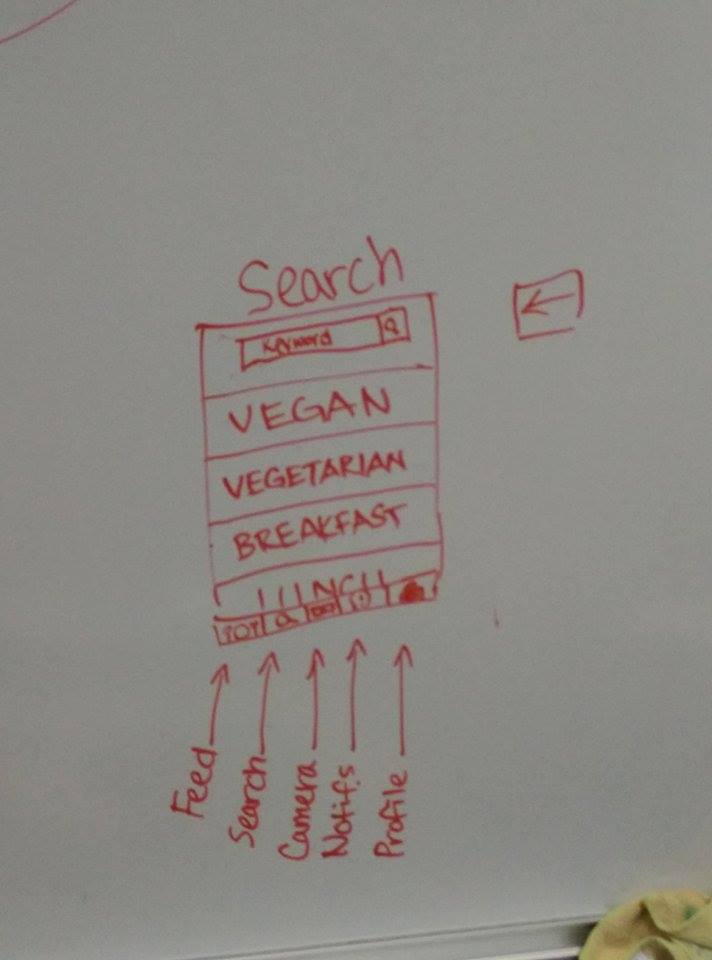 Search
Keyword
VEGAN
VEGETARIAN
BREAKFAST
LUNCH
Feed
Search
Camera
Notifs
Profile